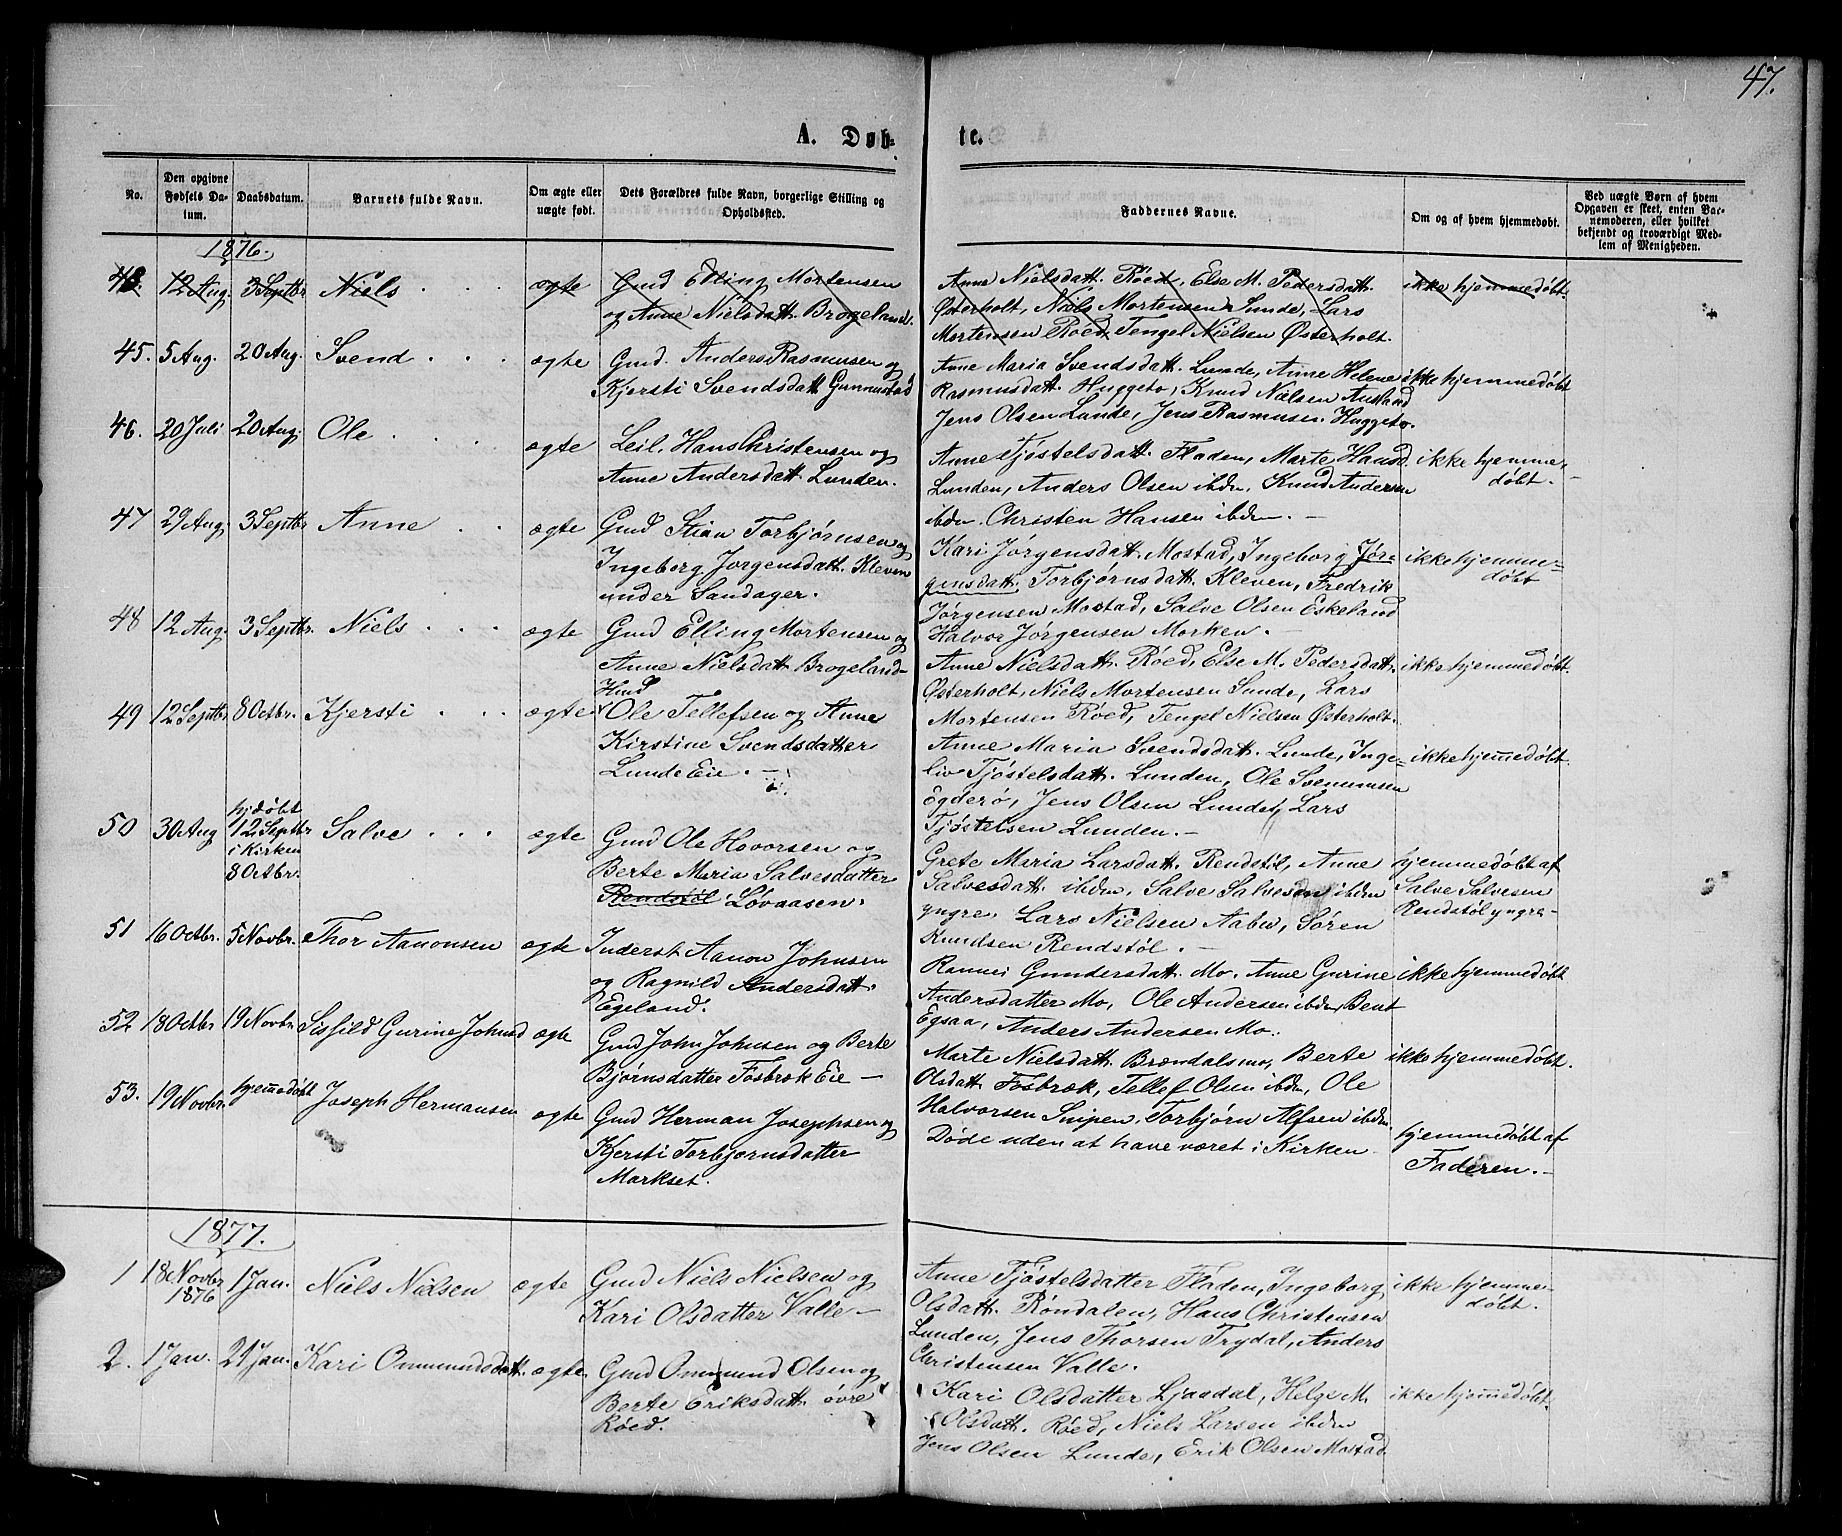 47.
A. Døb-
te.
No.
Den opgivne
Fødsels Da-
tum.
Daabsdatum.
Barnets fulde Navn.
Om ægte eller
uægte født.
Dets Forældres fulde Navn, borgerlige Stilling og
Opholdssted.
Faddernes Navne.
Om og af hvem hjemmedøbt.
Ved uægte Børn af hvem
Opgaven er skeet, enten Bar-
nemoderen, eller hvilket
bekjendt og troværdigt Med-
lem af Menigheden.
1876.
48. 12 Aug. 3 Septbr Niels ægte Gmd Elling Mortensen
og Anne Nielsdatt. Brogeland.
Anne Nielsdatt. Røed, Else M. Pedersdatt.
Østerholt, Niels Mortensen Sunde, Lars
Mortensen Røed, Tengel Nielsen Østerholt.
ikke hjemmedøbt.
45. 5 Aug. 20 Aug. Svend ægte Gmd. Anders Rasmusen og
Kjersti Svendsdatt Gunnustad
Anne Maria Svendsdatt. Lunde, Anne Helene
Rasmusdatt. Huggeto, Knud Nielsen Austad
Jens Olsen Lunde, Jens Rasmusen Huggeto.
ikke hjemmedøbt
46. 20 Juli 20 Aug. Ole ægte Leil. Hans Christensen og
Anne Andersdatt. Lunden.
Anne Tjøstelsdatt. Fladen, Marte Hansd.
Lunden, Anders Olsen ibdn, Knud Andersen
ibdn. Christen Hansen ibdn.
ikke hjemme-
døbt.
47 29 Aug. 3 Septbr Anne ægte Gmd Stian Torbjørnsen og
Ingeborg Jørgensdatt. Kleven
under Sandager.
Kari Jørgensdatt. Mostad, Ingeborg Jør-
gensdatt. Torbjørnsdatt. Kleven, Fredrik
Jørgensen Mostad, Salve Olsen Eskeland
Halvor Jørgensen Morken.
ikke hjemme-
døbt
48 12 Aug. 3 Septbr. Niels ægte Gmd Elling Mortensen og
Anne Nielsdatt. Brogeland
Anne Nielsdatt. Røed, Else M. Pedersdatt.
Østerholt, Niels Mortensen Sunde, Lars
Mortensen Røed, Tengel Nielsen Østerholt.
ikke hjemmedøbt
49 12 Septbr. 8 Octbr. Kjersti ægte Hmd Ole Tellefsen og Anne
Kirstine Svendsdatter
Lunde Eie.
Anne Maria Svendsdatt. Lunde, Inge-
liv Tjøstelsdatt. Lunden, Ole Svennusen
Egderø, Jens Olsen Lunde, Lars
Tjøstelsen Lunden.
ikke hjemmedøbt.
50 30 Aug hjdøbt
12 Septbr
i Kirken
8 Octbr.
Salve ægte Gmd Ole Hovorsen og
Berte Maria Salvesdatter
Rendstøl Løvaasen.
Grete Maria Larsdatt. Rendstøl, Anne
Salvesdatt. ibdn, Salve Salvesen ibdn
yngre, Lars Nielsen Aabu, Søren
Knudsen Rendstøl.
hjemmedøbt af
Salve Salvesen
Rendstøl yngre
51 16 Octbr. 5 Novbr. Thor Aanonsen ægte Inderst Aanon Johnsen
og Ragnild Andersdatt.
Egeland.
Rannei Gundersdatt. Mo. Anne Gurine
Andersdatter Mo, Ole Andersen ibdn, Bent
Egsaa, Anders Andersen Mo.
ikke hjemmedøbt
52 18 Octbr 19 Novbr. Sisfild Gurine Johnsd ægte Gmd John Johnsen og Berte
Bjørnsdatter Fosbræk Eie
Marte Nielsdatt. Brændalsmo, Berte
Olsdatt. Fosbræk, Tellef Olsen ibdn, Ole
Halvorsen Snipen, Torbjørn Alfsen ibdn.
ikke hjemmedøbt.
53. 19 Novbr. hjemmedøbt Joseph Hermansen ægte Gmd Herman Josephsen og
Kjersti Torbjørnsdatter
Markset.
Døde uden at have været i Kirken
hjemmedøbt af
Faderen.
1877.
1 18 Novbr
1876
1 Jan. Niels Nielsen ægte Gmd Niels Nielsen og
Kari Olsdatter Valle
Anne Tjøstelsdatter Fladen, Ingeborg
Olsdatt. Røndalen, Hans Christensen
Lunden, Jens Thorsen Trydal, Anders
Christensen Valle.
ikke hjemme-
døbt.
2. 1 Jan. 21 Jan. Kari Ommundsdatt. ægte Gmd Ommund Olsen og
Berte Eriksdatt. øvre
Røed.
Kari Olsdatter Ljaadal, Helge M.
Olsdatt. Røed, Niels Larsen ibdn
Jens Olsen Lunde, Erik Olsen Mostad
ikke hjemmedøbt.